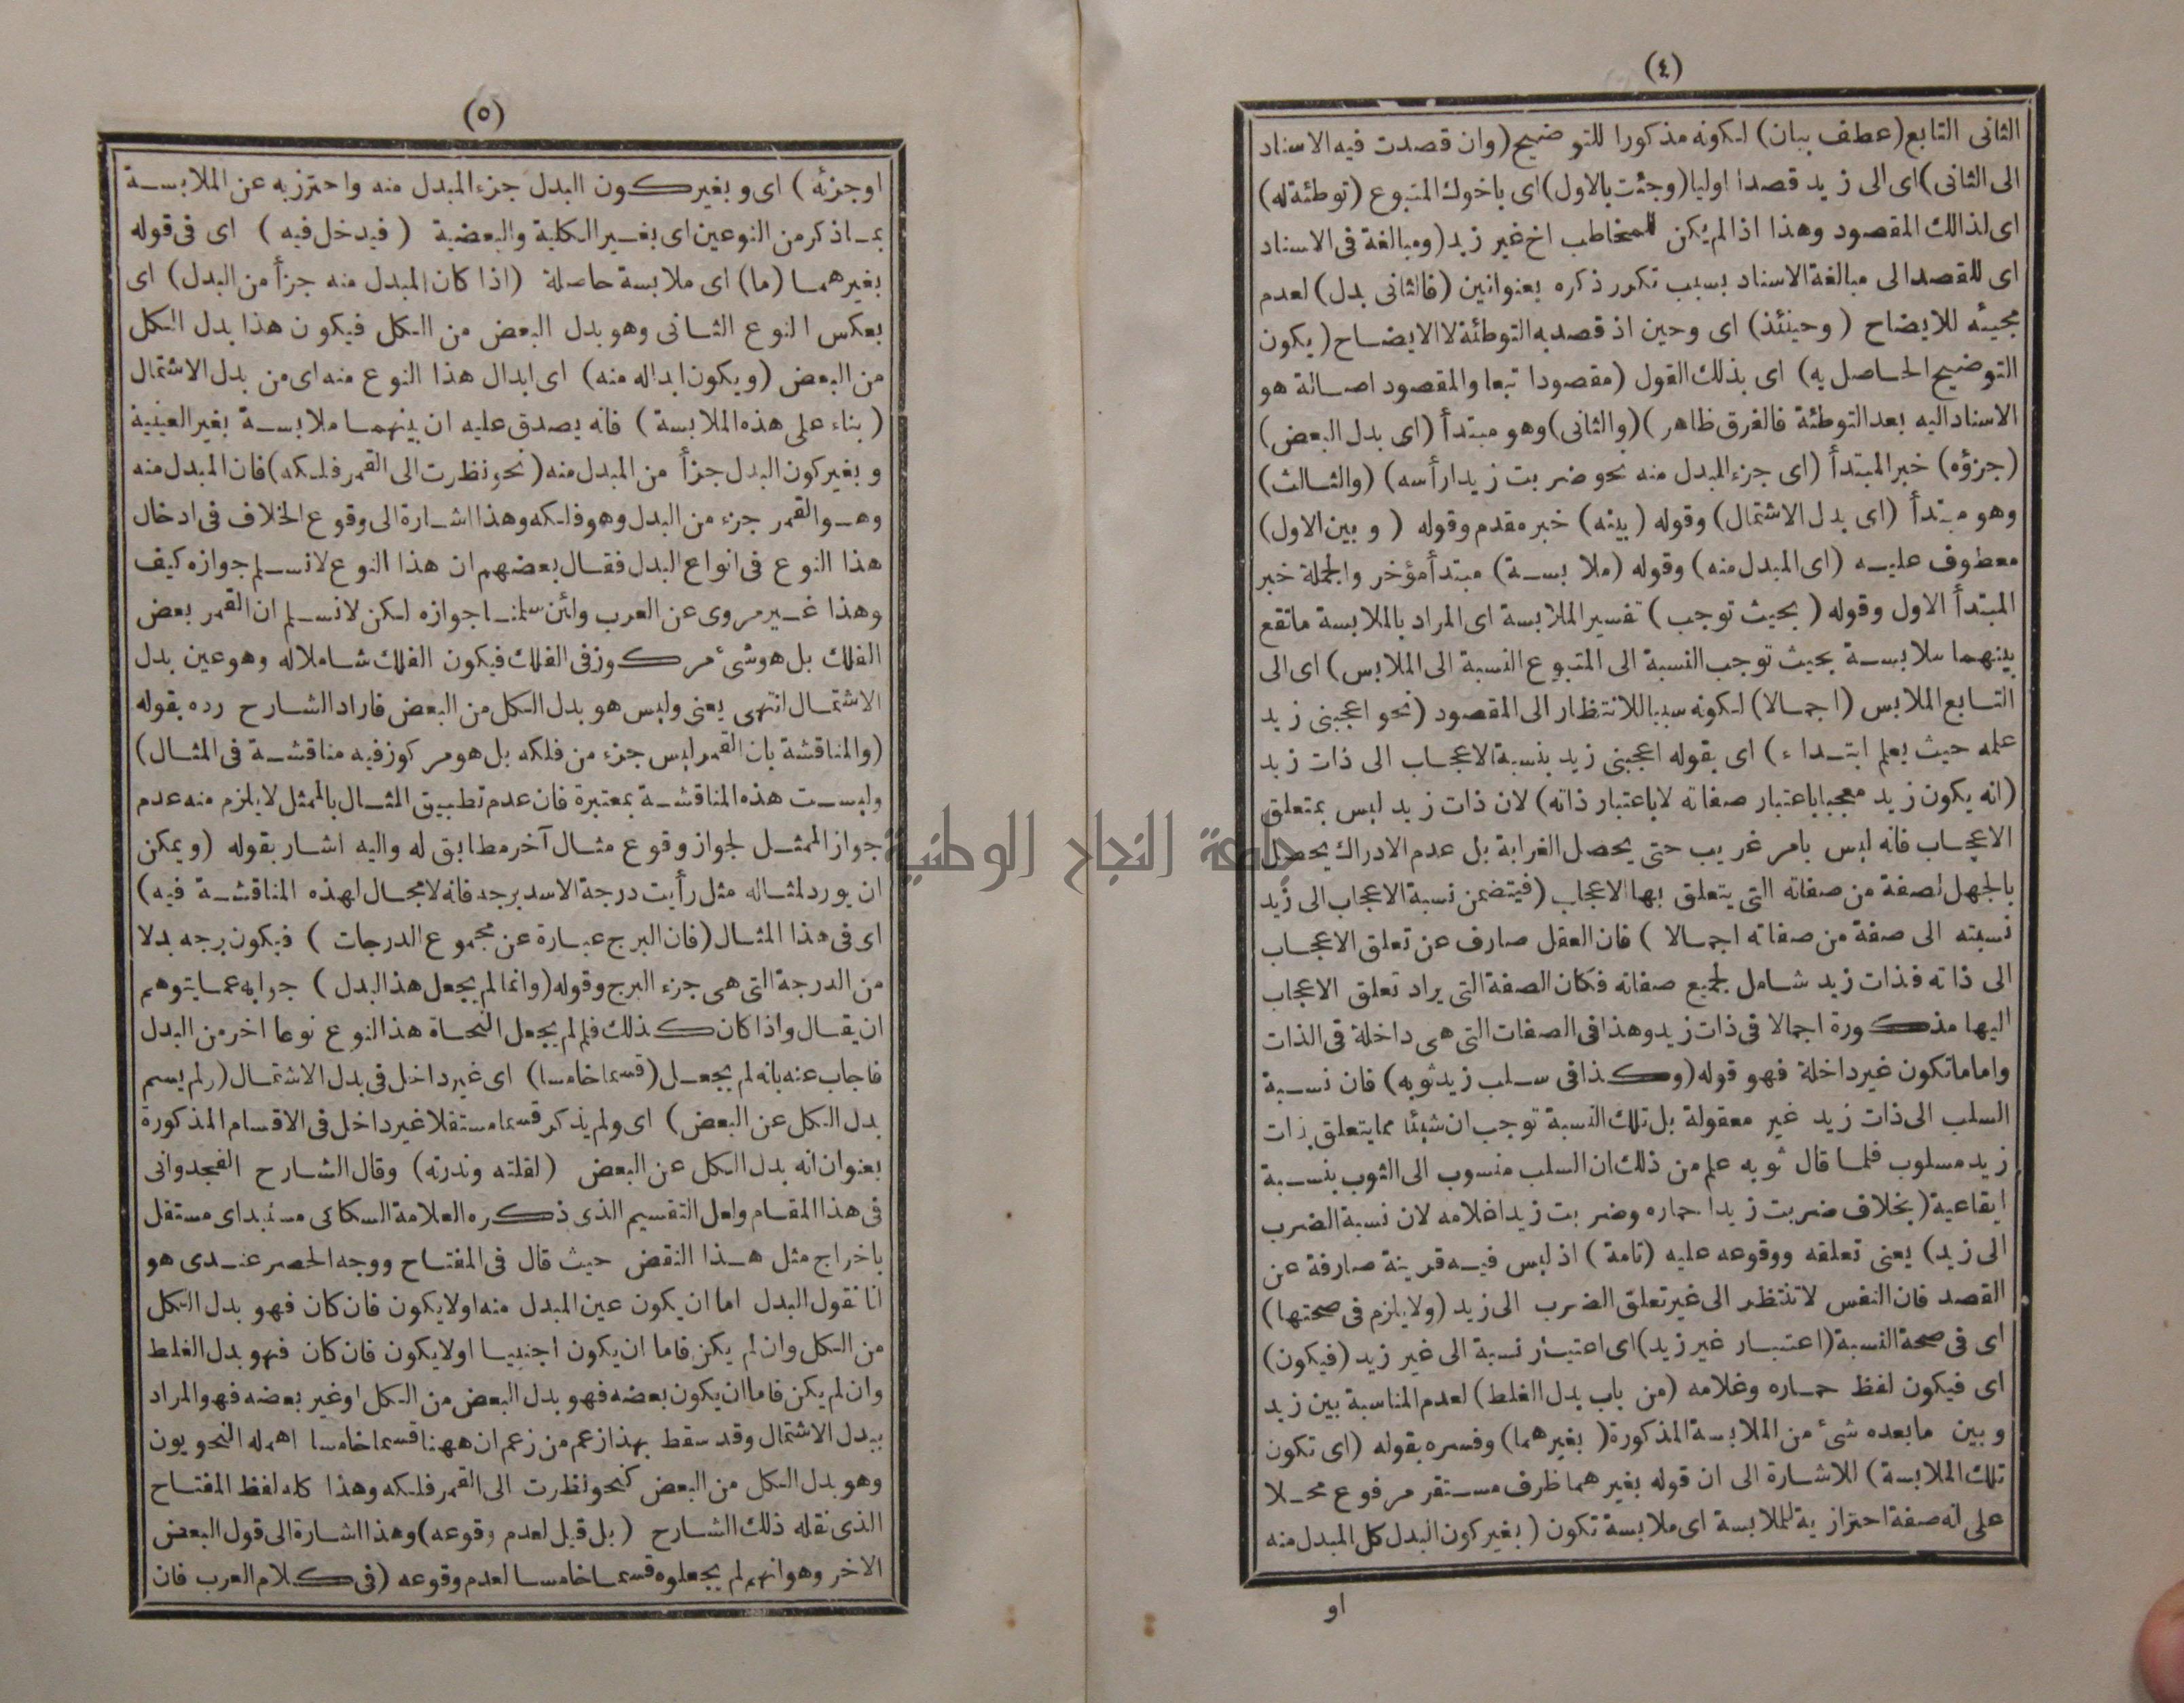 (٤)
الثانى التابع (عطف بيان) لكونه مذكورا للتوضيح (وان قصدت فيه الاسناد
الى الثانى) اى الى زيد قصدا اوليا (وجئت بالاول) اى باخوك المتبوع (توطئة له)
اى لذلك المقصود وهذا اذا لم يكن للمخاطب اخ غير زيد (ومبالغة فى الاسناد
اى للقصد الى مبالغة الاسناد بسبب تكرر ذكره بعنوانين (فالثانى بدل) لعدم
مجيئه للايضاح (وحينئذ) اى وحين اذ قصد به التوطئة لا الايضاح (يكون
التوضيح الحاصل به) اى بذلك القول (مقصودا تبعا والمقصود اصالة هو
الاسناد اليه بعد التوطئة فالفرق ظاهر) (والثانى) وهو مبتدأ (اى بدل البعض)
(جزؤه) خبر المبتدأ (اى جزء المبدل منه نحو ضربت زيدا رأسه) (والثالث)
وهو مبتدأ (اى بدل الاشتمال) وقوله (بينه) خبر مقدم وقوله (وبين الاول)
معطوف عليه (اى المبدل منه) وقوله (ملابسة) مبتدأ مؤخر والجملة خبر
المبتدأ الاول وقوله (بحيث توجب) تفسير الملابسة اى المراد بالملابسة ماتقع
بينهما ملابسة بحيث توجب النسبة الى المتبوع النسبة الى الملابس) اى الى
التابع الملابس (اجمالا) لكونه سببا للانتظار الى المقصود (نحو اعجبنى زيد
علمه حيث يعلم ابتداء) اى بقوله اعجبنى زيد بنسبة الاعجاب الى ذات زيد
(انه يكون زيد معجبا باعتبار صفاته لا باعتبار ذاته) لان ذات زيد ليس بمتعلق
الاعجاب فانه ليس بامر غريب حتى يحصل الغرابة بل عدم الادراك يحصل
بالجهل لصفة من صفاته التى يتعلق بها الاعجاب (فيتضمن نسبة الاعجاب الى زيد
نسبته الى صفة من صفاته اجمالا) فان العقل صارف عن تعلق الاعجاب
الى ذاته فذات زيد شامل لجميع صفاته فكان الصفة التى يراد تعلق الاعجاب
اليها مذكورة اجمالا فى ذات زيد وهذا فى الصفات التى هى داخلة فى الذات
واما ماتكون غير داخلة فهو قوله (وكذا فى سلب زيد ثوبه) فان نسبة
السلب الى ذات زيد غير معقولة بل تلك النسبة توجب ان شيئا مما يتعلق بذات
زيد مسلوب فلما قال ثوبه علم من ذلك ان السلب منسوب الى الثوب بنسبة
ايقاعية (بخلاف ضربت زيدا حماره وضربت زيدا غلامه لان نسبة الضرب
الى زيد) يعنى تعلقه ووقوعه عليه (تامة) اذ ليس فيه قرينة صارفة عن
القصد فان النفس لا تنتظر الى غير تعلق الضرب الى زيد (ولا يلزم فى صحتها)
اى فى صحة النسبة (اعتبار غير زيد) اى اعتبار نسبة الى غير زيد (فيكون)
اى فيكون لفظ حماره وغلامه (من باب بدل الغلط) لعدم المناسبة بين زيد
وبين مابعده شئ من الملابسة المذكورة (بغيرهما) وفسره بقوله (اى تكون
تلك الملابسة) للاشارة الى ان قوله بغيرهما ظرف مستقر مرفوع محلا
على انه صفة احترازية للملابسة اى ملابسة تكون (بغير كون البدل كل المبدل منه
او
(٥)
اوجزئه) اى وبغير كون البدل جزء المبدل منه واحترز به عن الملابسة
بما ذكر من النوعين اى بغير الكلية والبعضية (فيدخل فيه) اى فى قوله
بغيرهما (ما) اى ملابسة حاصلة (اذا كان المبدل منه جزأ من البدل) اى
بعكس النوع الثانى وهو بدل البعض من الكل فيكون هذا بدل الكل
من البعض (ويكون ابداله منه) اى ابدال هذا النوع منه اى من بدل الاشتمال
(بناء على هذه الملابسة) فانه يصدق عليه ان بينهما ملابسة بغير العينية
وبغير كون البدل جزأ من المبدل منه (نحو نظرت الى القمر فلكه) فان المبدل منه
وهو القمر جزء من البدل وهو فلكه وهذا اشارة الى وقوع الخلاف فى ادخال
هذا النوع فى انواع البدل فقال بعضهم ان هذا النوع لا نسلم جوازه كيف
وهذا غير مروى عن العرب ولئن سلمنا جوازه لكن لا نسلم ان القمر بعض
الفلك بل هو شئ مركوز فى الفلك فيكون الفلك شاملا له وهو عين بدل
الاشتمال انتهى يعنى وليس هو بدل الكل من البعض فاراد الشارح رده بقوله
(والمناقشة بان القمر ليس جزء من فلكه بل هو مركوز فيه مناقشة فى المثال)
وليست هذه المناقشة بمعتبرة فان عدم تطبيق المثال بالممثل لا يلزم منه عدم
جواز الممثل لجواز وقوع مثال آخر مطابق له واليه اشار بقوله (ويمكن
ان يورد لمثاله مثل رأيت درجة الاسد برجه فانه لا مجال لهذه المناقشة فيه)
اى فى هذا المثال (فان البرج عبارة عن مجموع الدرجات) فيكون برجه بدلا
من الدرجة التى هى جزء البرج وقوله (وانما لم يجعل هذا البدل) جوابه عما يتوهم
ان يقال واذا كان كذلك فلم لم يجعل النحاة هذا النوع نوعا اخر من البدل
فاجاب عنه بانه لم يجعل (قسما خامسا) اى غير داخل فى بدل الاشتمال (ولم يسم
بدل الكل عن البعض) اى ولم يذكر قسما مستقلا غير داخل فى الاقسام المذكورة
بعنوان انه بدل الكل عن البعض (لقلته وندرته) وقال الشارح الفجدوانى
فى هذا المقام ولعل التقسيم الذى ذكره العلامة السكاكى مستبد اى مستقل
باخراج مثل هذا النقض حيث قال فى المفتاح ووجه الحصر عندى هو
انا نقول البدل اما ان يكون عين المبدل منه او لا يكون فان كان فهو بدل الكل
من الكل وان لم يكن فاما ان يكون اجنبيا او لا يكون فان كان فهو بدل الغلط
وان لم يكن فاما ان يكون بعضه فهو بدل البعض من الكل او غير بعضه فهو المراد
ببدل الاشتمال وقد سقط بهذا زعم من زعم ان ههنا قسما خامسا اهمله النحويون
وهو بدل الكل من البعض كنحو نظرت الى القمر فلكه وهذا كله لفظ المفتاح
الذى نقله ذلك الشارح (بل قيل لعدم وقوعه) وهذا اشارة الى قول البعض
الاخر وهو انهم لم يجعلوه قسما خامسا لعدم وقوعه (فى كلام العرب فان
جامعة النجاح الوطنية